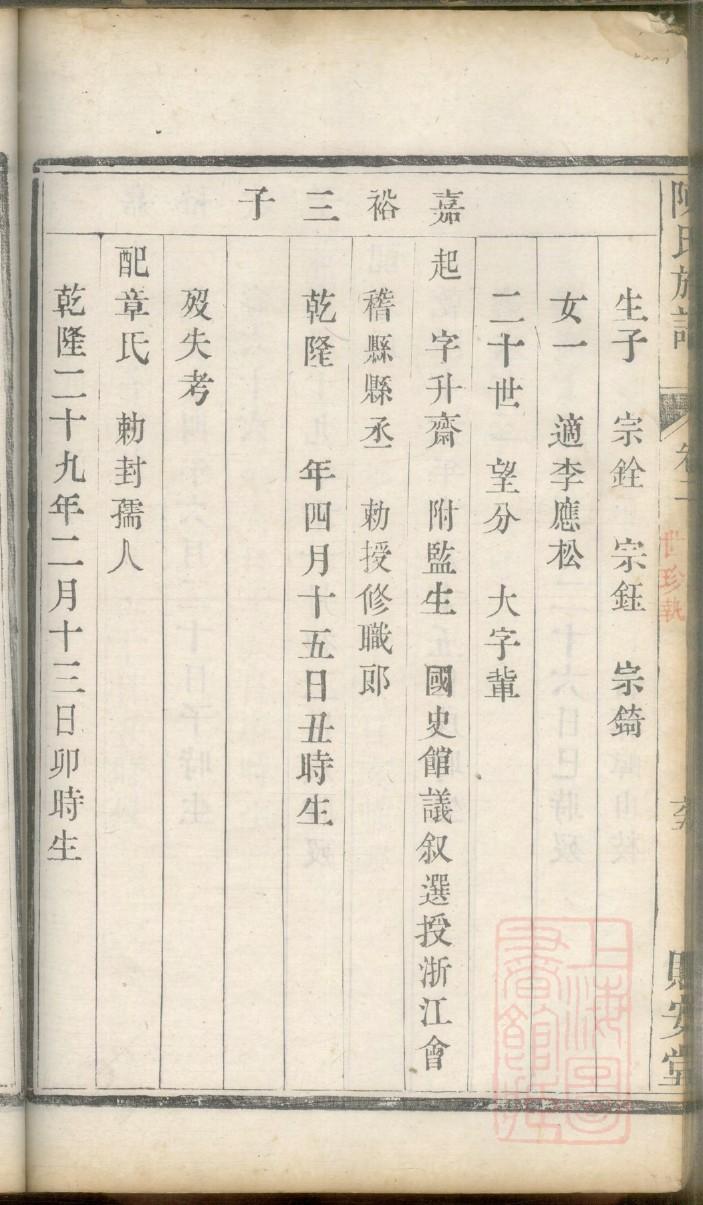 陳氏族譜 卷二 賜安堂
世珍執
生子 宗銓 宗鈺 宗錡
女一 適李應松
二十世 望分 大字輩
嘉裕三子
起 字升齋 附監生 國史館議叙選授浙江會
稽縣縣丞 勅授修職郎
乾隆 年四月十五日丑時生
歿失考
配章氏 勅封孺人
乾隆二十九年二月十三日卯時生
上海圖書館藏